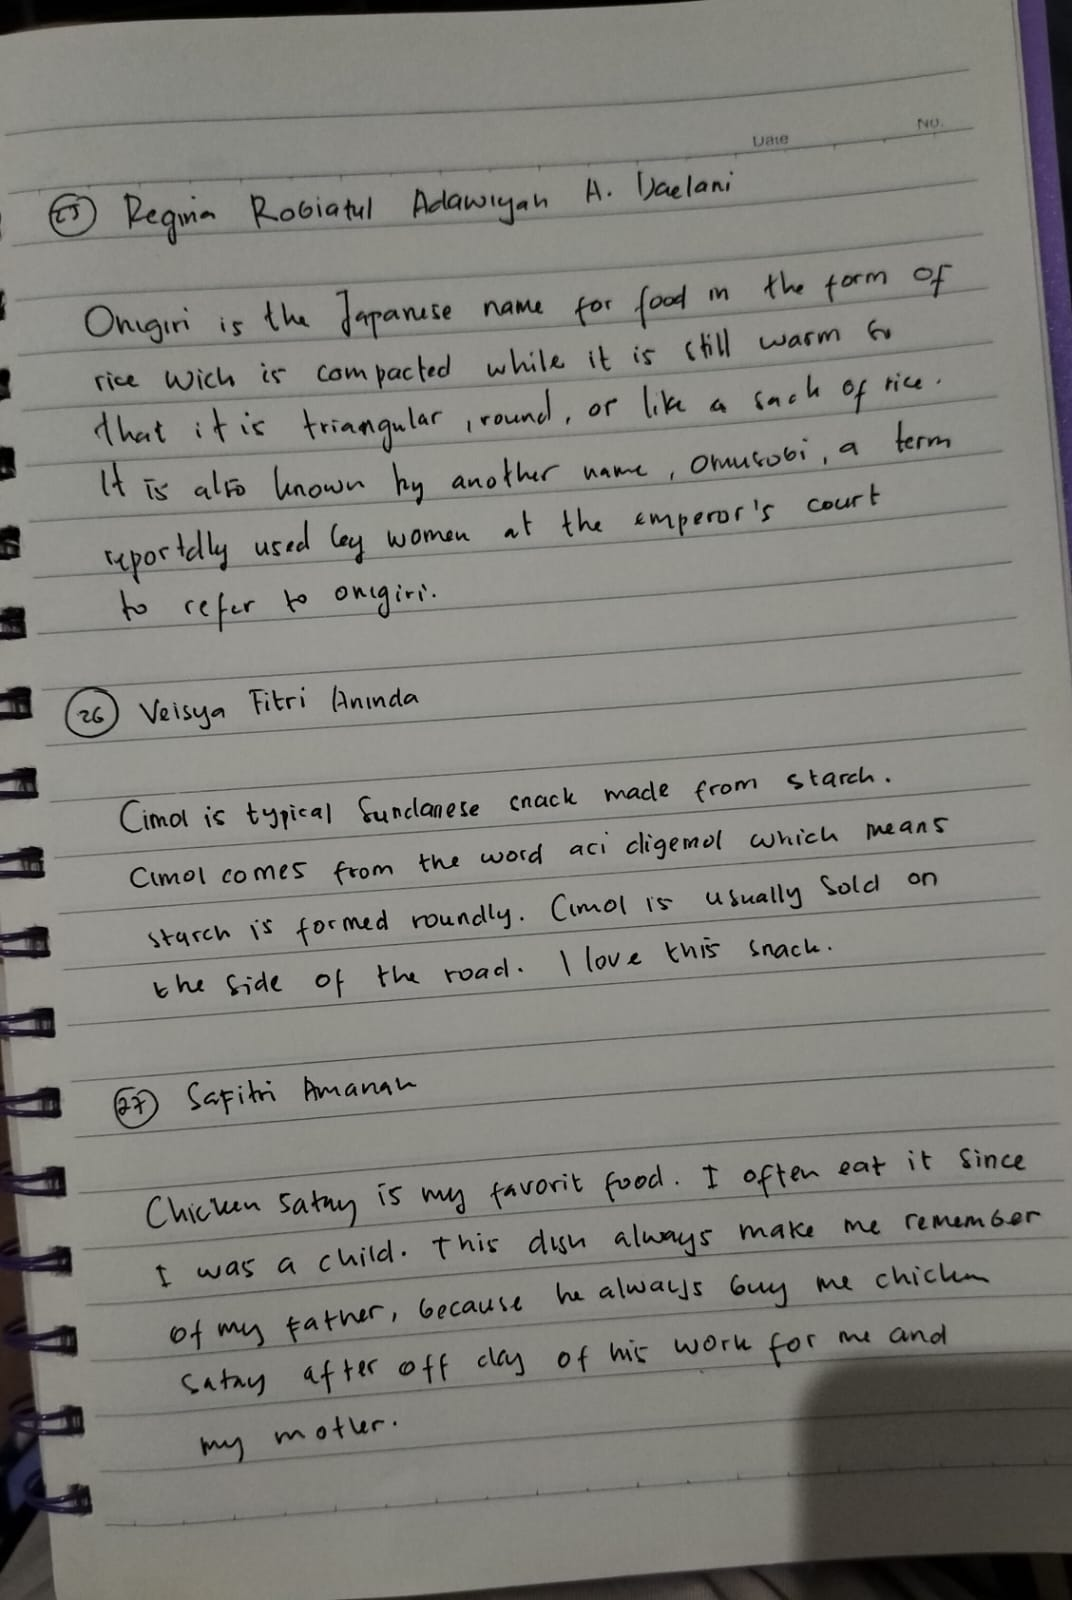 Date No.
25 Regina Robiatul Adawiyah A. Daelani
Onigiri is the Japanese name for food in the form of
rice wich is compacted while it is still warm so
that it is triangular, round, or like a sack of rice.
It is also known by another name, omusubi, a term
reportdly used by women at the emperor's court
to refer to onigiri.
26 Veisya Fitri Aninda
Cimol is typical Sundanese snack made from starch.
Cimol comes from the word aci digemol which means
starch is formed roundly. Cimol is usually sold on
the side of the road. I love this snack.
27 Safitri Amanah
Chicken satay is my favorit food. I often eat it since
I was a child. This dish always make me remember
of my father, because he always buy me chicken
satay after off day of his work for me and
my mother.